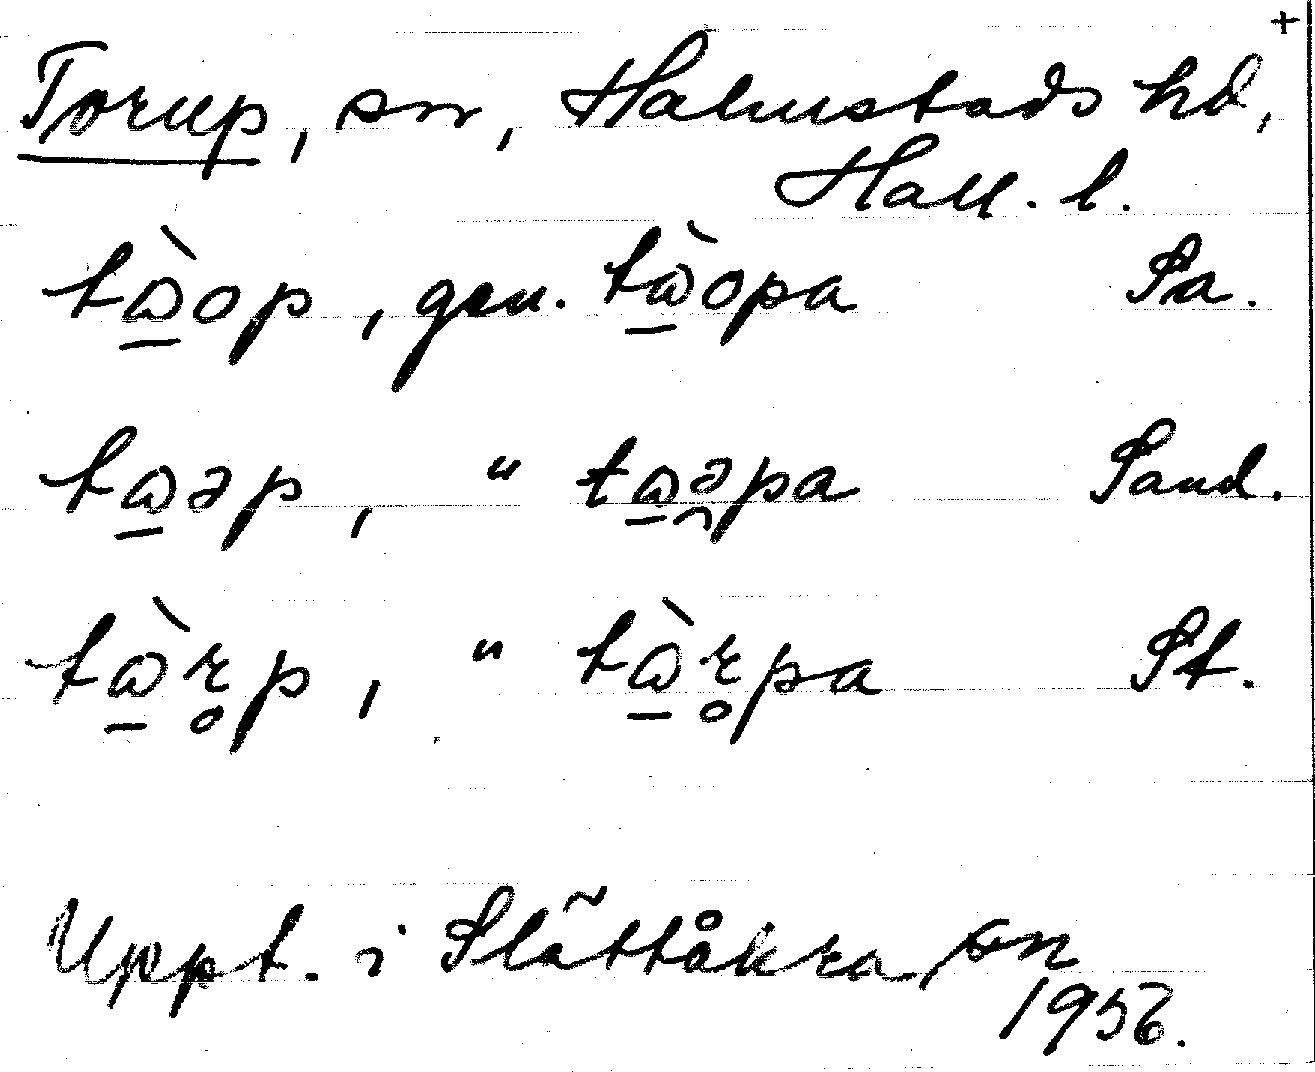 +
Torup, sn, Halmstads hd,
Hall. l.
tɷ̱̀op, gen. tɷ̱̀opa Sa.
tɷ̱əp, " tɷ̱ə̯pa Sand.
tɷ̱̀r̥p, " tɷ̱̀r̥pa St.
Uppt. i Slättåkra sn
1956.